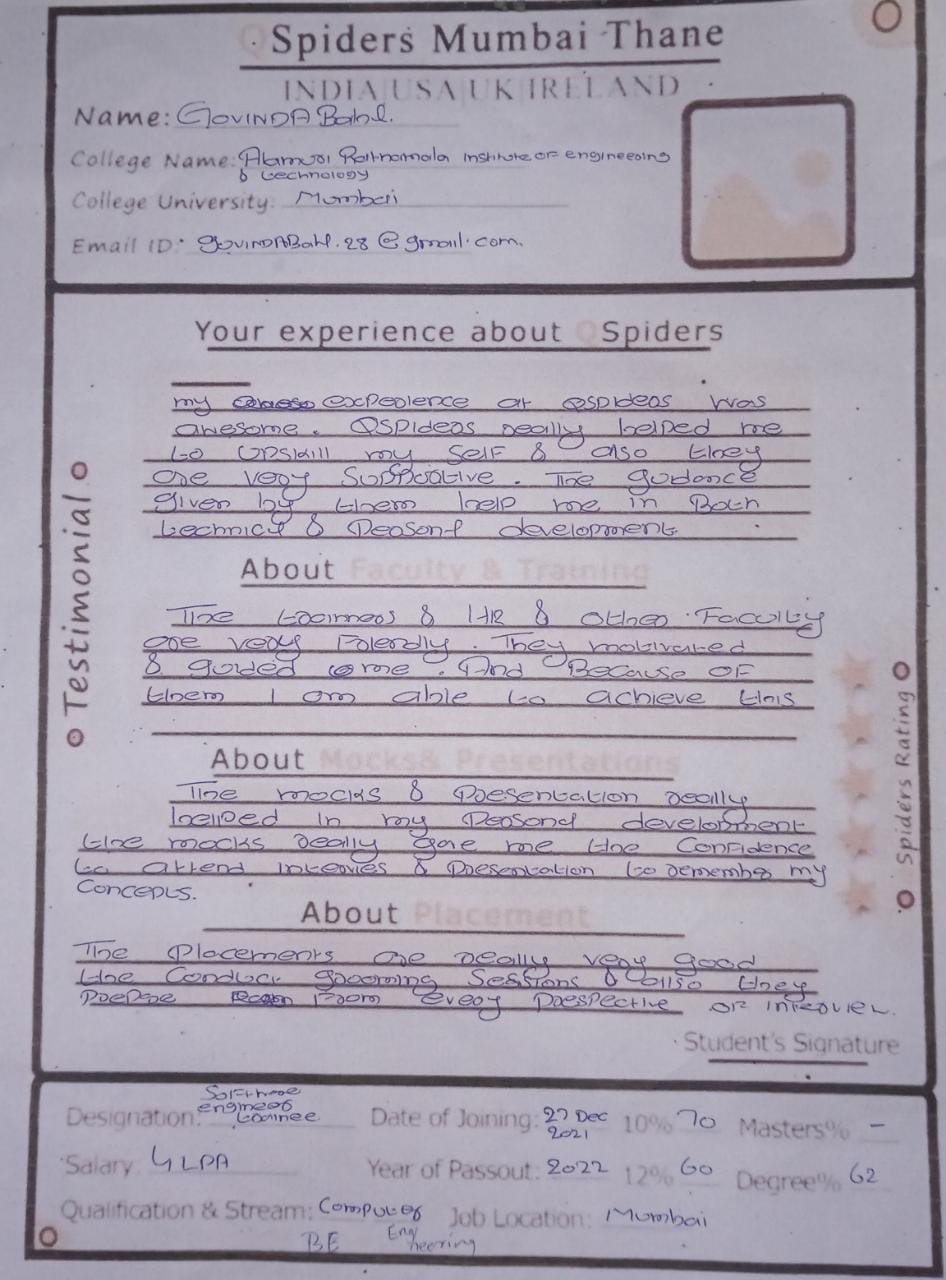 QSpiders Mumbai Thane
INDIA|USA|UK|IRELAND
Name: GOVINDA Bahl.
College Name: Alamuri Ratnamala Institute of engineering
& technology
College University: Mumbai
Email ID: GOVINDABahl.28@gmail.com.
Your experience about QSpiders
my experience at QSpiders was
awesome. QSpiders really helped me
to Upskill my self & also they
are very Supportive. The guidance
given by them help me in Both
technical & Personal development
About Faculty & Training
The trainers & HR & other Faculty
are very Friendly. They motivated
& guided me. And Because of
them I am able to achieve this
About Mocks& Presentations
The mocks & Presentation really
helped in my Personal development
the mocks really gave me the Confidence
to attend intervies & Presentation to remember my
Concepts.
About Placement
The Placements are really very good
the Conduct grooming Sessions & also they
Prepare From every Prespective of interview.
Student's Signature
Testimonial
Spiders Rating
Designation: Software
engineer
trainee
Date of Joining: 27 Dec
2021
10% 70
Masters% -
Salary: 4 LPA
Year of Passout: 2022
12% 60
Degree% 62
Qualification & Stream: Computer
BE Engineering
Job Location: Mumbai